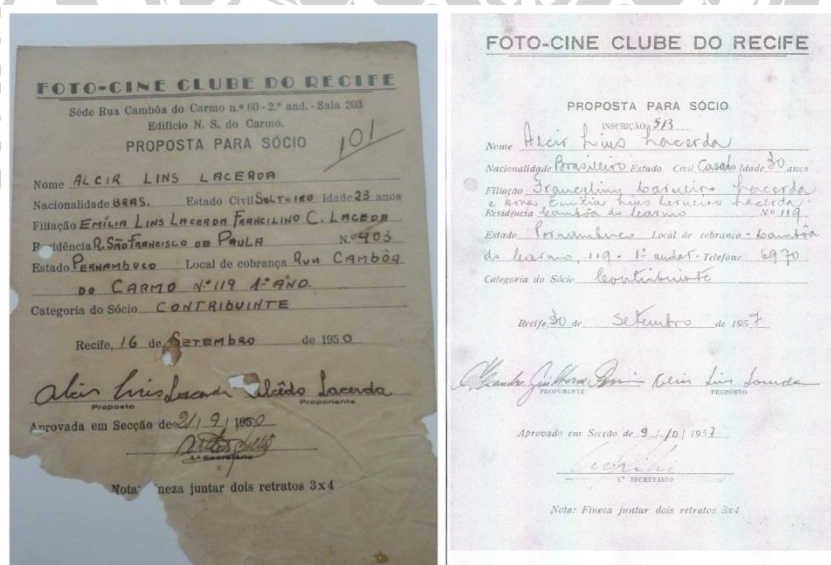 FOTO-CINE CLUBE DO RECIFE
Séde Rua Cambôa do Carmo n.º 60 - 2.º and. - Sala 203
Edifício N. S. do Carmo.
PROPOSTA PARA SÓCIO
101
Nome ALCIR LINS LACERDA
Nacionalidade BRAS. Estado Civil SOLTEIRO Idade 23 anos
Filiação EMÍLIA LINS LACERDA FRANCILINO C. LACERDA
Residência R. SÃO FRANCISCO DE PAULA N.º 403
Estado PERNAMBUCO Local de cobrança RUA CAMBÔA
DO CARMO Nº 119 1º AND.
Categoria do Sócio CONTRIBUINTE
Recife, 16 de SETEMBRO de 1950
Alcir Lins Lacerda Alcêdo Lacerda
Proposto Proponente
Aprovada em Secção de 21/9/1950
1.º Secretário
Nota: neza juntar dois retratos 3x4
FOTO-CINE CLUBE DO RECIFE
PROPOSTA PARA SÓCIO
INSCRIÇÃO 513
Nome Alcir Lins Lacerda
Nacionalidade Brasileiro Estado Civil Casado Idade 30 anos
Filiação Francilino Carneiro Lacerda
e Emilia Lins Carneiro Lacerda
Residência Cambôa do Carmo Nº 119
Estado Pernambuco Local de cobrança - Cambôa
do Carmo, 119 - 1º andar - Telefone 6970
Categoria do Sócio Contribuinte
Recife, 30 de Setembro de 1957
Alcir Lins Lacerda
PROPONENTE PROPOSTO
Aprovado em Secção de 9/10/1957
1.º SECRETÁRIO
Nota: Fineza juntar dois retratos 3x4